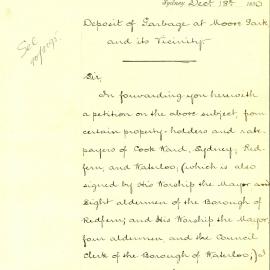 Sydney Decr 18th
Deposit of Garbage at Moore Park
and its Vicinity.
See
Sir,
In forwarding you herewith
a petition on the above subject, from
certain property-holders and rate-
payers of Cook Ward, Sydney, Red-
fern, and Waterloo, (which is also
signed by His Worship the Mayor and
Eight aldermen of the Borough of
Redfern; and His Worship the Mayor,
four aldermen, and the Council
Clerk of the Borough of Waterloo,)